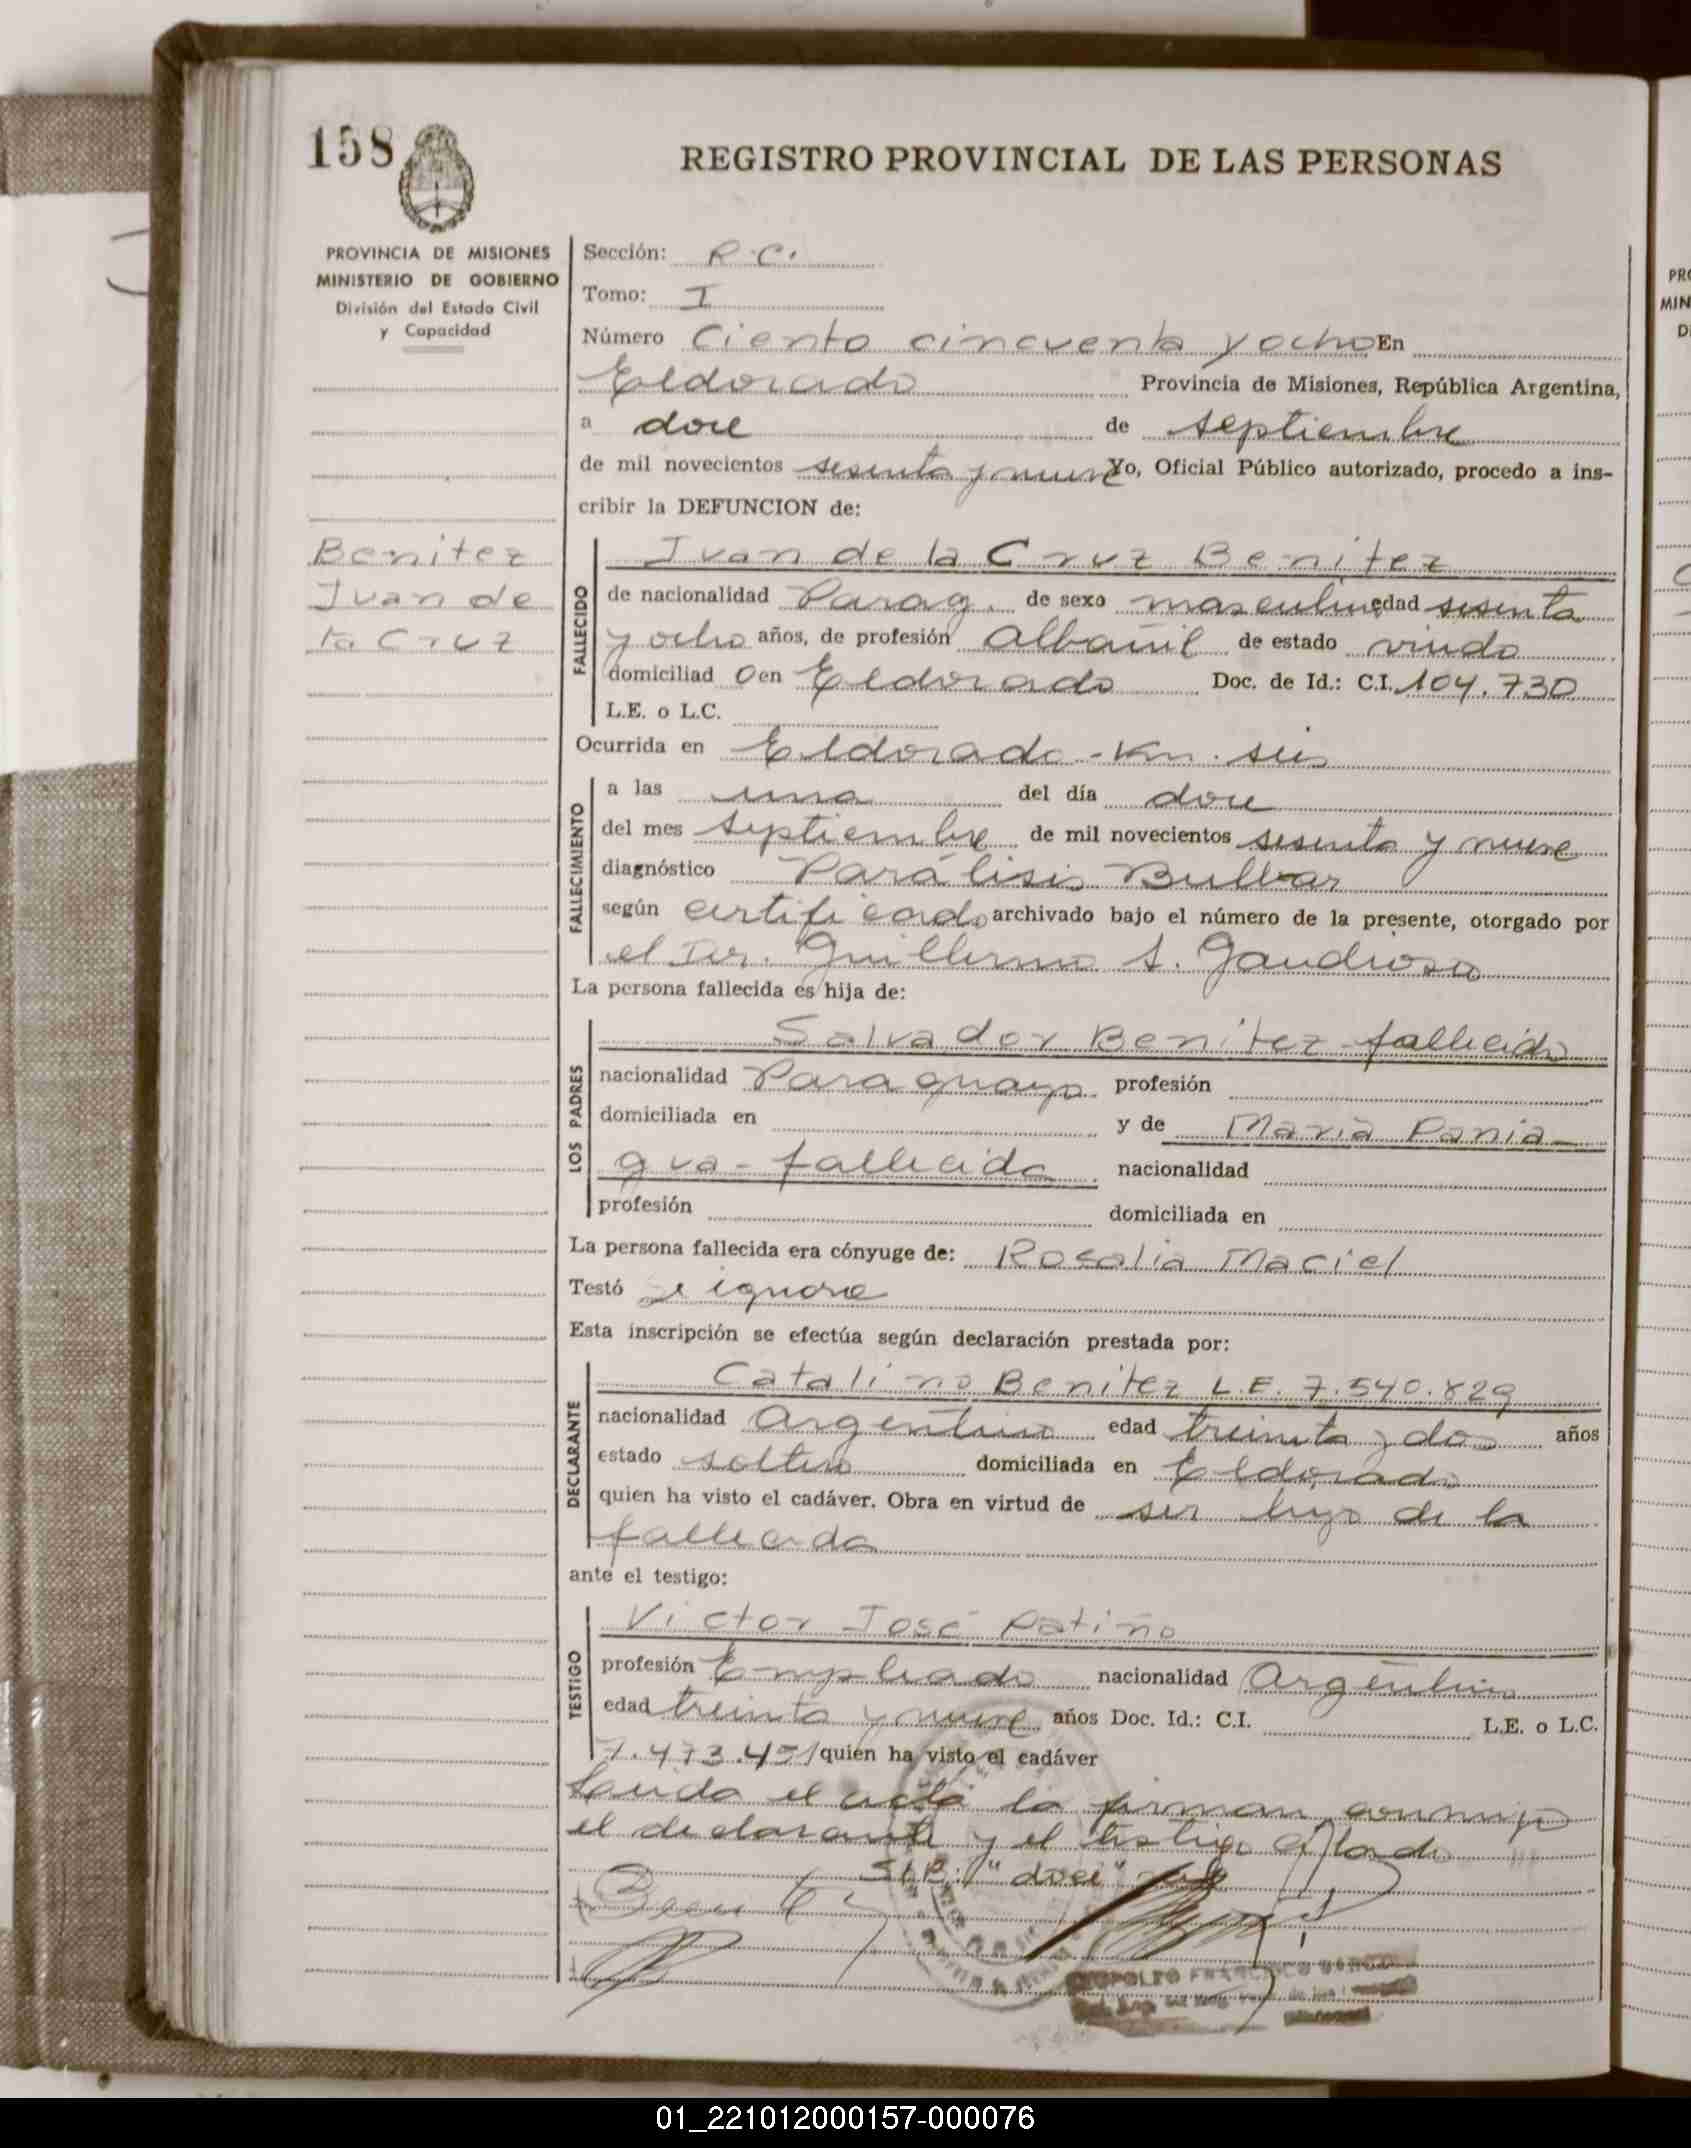 158
REGISTRO PROVINCIAL DE LAS PERSONAS
PROVINCIA DE MISIONES
MINISTERIO DE GOBIERNO
División del Estado Civil
y Capacidad
Benitez
Juan de
la Cruz
Sección: R.C.
Tomo: I
Número Ciento cincuenta y ocho En
Eldorado Provincia de Misiones, República Argentina,
a doce de septiembre
de mil novecientos sesenta y nueve Yo, Oficial Público autorizado, procedo a ins-
cribir la DEFUNCION de:
FALLECIDO
Juan de la Cruz Benitez
de nacionalidad Parag. de sexo masculino edad sesenta
y ocho años, de profesión Albañil de estado viudo
domiciliad o en Eldorado Doc. de Id.: C.I. 104.730
L.E. o L.C.
Ocurrida en Eldorado - Km. seis
FALLECIMIENTO
a las una del día doce
del mes septiembre de mil novecientos sesenta y nueve
diagnóstico Parálisis Bulbar
según certificado archivado bajo el número de la presente, otorgado por
el Dr. Guillermo A. Gaudioso
La persona fallecida es hija de:
LOS PADRES
Salvador Benitez fallecido
nacionalidad Paraguayo profesión
domiciliada en y de Maria Pania-
gua - fallecida nacionalidad
profesión domiciliada en
La persona fallecida era cónyuge de: Rosalia Maciel
Testó se ignora
Esta inscripción se efectúa según declaración prestada por:
DECLARANTE
Catalino Benitez L.E. 7.540.829
nacionalidad Argentino edad treinta y dos años
estado soltero domiciliada en Eldorado
quien ha visto el cadáver. Obra en virtud de ser hijo de la
fallecida
ante el testigo:
TESTIGO
Victor José Patiño
profesión Empleado nacionalidad Argentino
edad treinta y nueve años Doc. Id.: C.I. L.E. o L.C.
7.473.451 quien ha visto el cadáver
Leida el acta la firman conmigo
el declarante y el testigo citado
S/R: "doce"
01_221012000157-000076